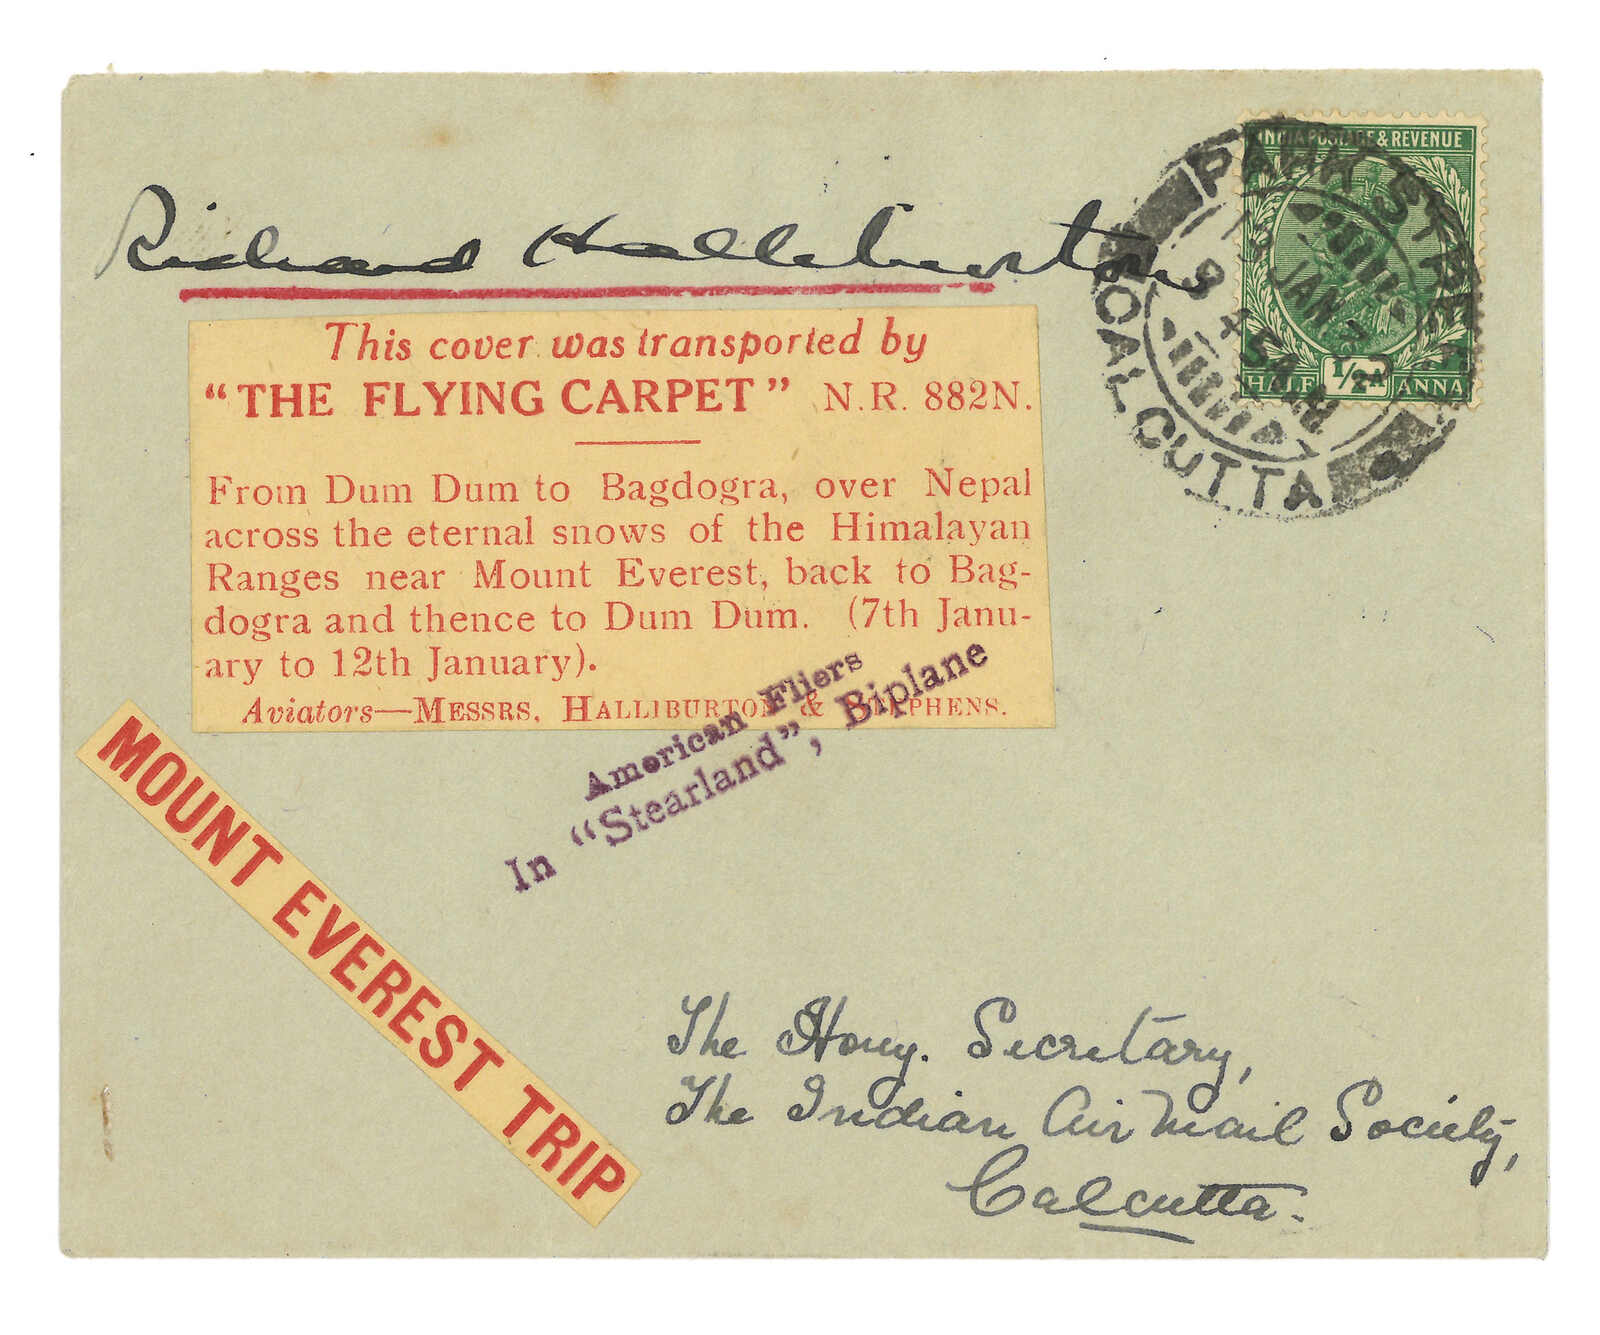 INDIA POSTAGE & REVENUE
HALF 1/2A ANNA
PARK STREET
CALCUTTA
JAN
9 45AM
Richard Halliburton
This cover was transported by
"THE FLYING CARPET" N.R. 882N.
From Dum Dum to Bagdogra, over Nepal
across the eternal snows of the Himalayan
Ranges near Mount Everest, back to Bag-
dogra and thence to Dum Dum. (7th Janu-
ary to 12th January).
Aviators—MESSRS. HALLIBURTON & STEPHENS.
American Fliers
In "Stearland", Biplane
MOUNT EVEREST TRIP
The Hony. Secretary,
The Indian Air Mail Society,
Calcutta.